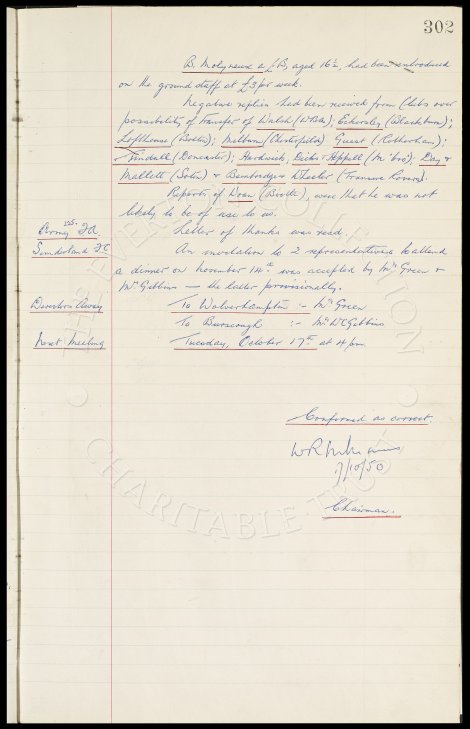 302
B. Molyneux a L.B, aged 16½, had been introduced
on the ground staff at £3 per week.
Negative replies had been received from Clubs over
possibility of transfer of Walsh (WBA); Eckersley (Blackburn);
Lofthouse (Bolton); Milburn (Chesterfield) Guest (Rotherham);
Tindall (Doncaster); Hardwick, & Appell (M'bro); Day &
Mallett (Soton) & Bainbridge & Wheeler (Tranmere Rovers).
Reports of Doan (Bootle), were that he was not
likely to be of use to us.
Army F.A. Letter of thanks was read.
Sunderland F.C An invitation to 2 representatives to attend
a dinner on November 14th was accepted by Mr Green &
Mr Gibbins — the latter provisionally.
Directors Away To Wolverhampton :- Mr Green
To Burscough :- Mr W.C Gibbins
Next Meeting Tuesday, October 17th at 4 pm.
Confirmed as correct.
17/10/50
Chairman.
THE EVERTON COLLECTION
CHARITABLE TRUST